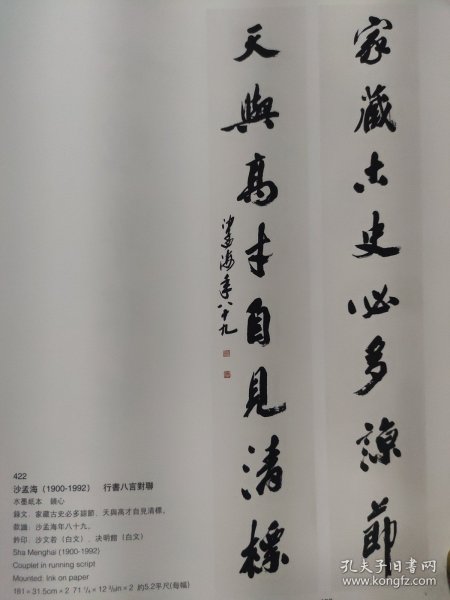 家藏古史必多諒節
天與高才自見清標
沙孟海年八十九
422
沙孟海 (1900-1992) 行書八言對聯
水墨紙本 鏡心
錄文：家藏古史必多諒節，天與高才自見清標。
款識：沙孟海年八十九。
鈐印：沙文若（白文）、決明館（白文）
Sha Menghai (1900-1992)
Couplet in running script
Mounted: Ink on paper
161×31.5cm×2 71 1/4×12 3/8in×2 約5.2平尺(每幅)
孔夫子旧书网